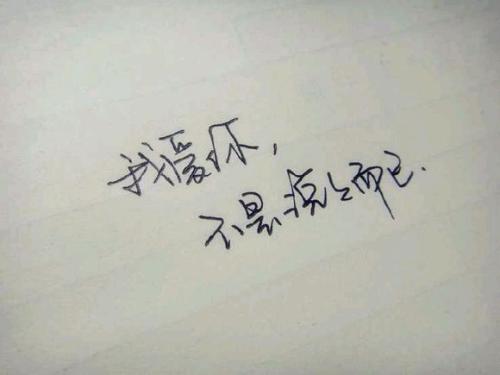 我爱你，
不是说说而已.